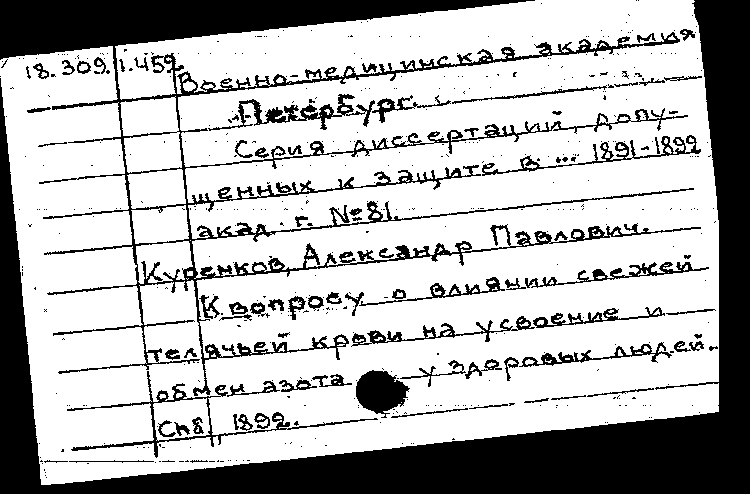 18.309.1.459. Военно-медицинская академия
Петербург.
Серия диссертаций, допу-
щенных к защите в ... 1891-1892
акад. г. №81.
Куренков, Александр Павлович.
К вопросу о влиянии свежей
телячьей крови на усвоение и
обмен азота у здоровых людей.
Спб., 1892.